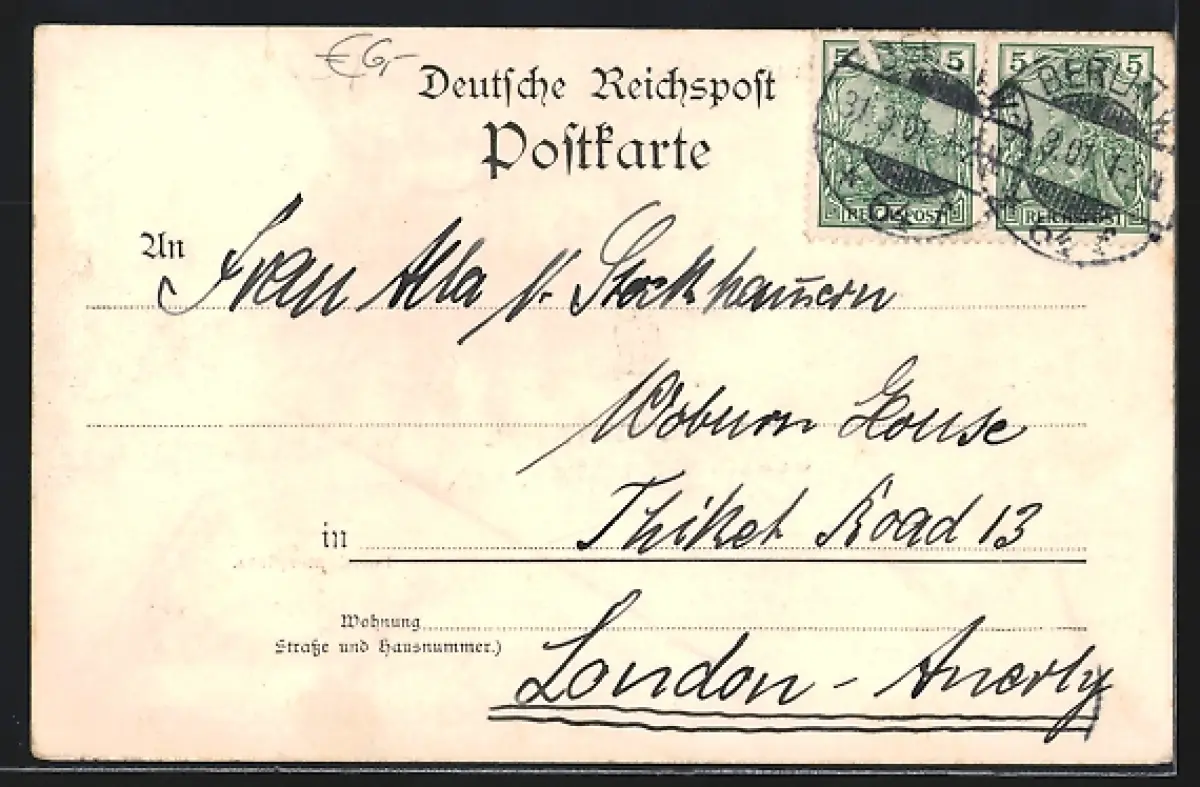 € 6,-
Deutsche Reichspost
Postkarte
5 5 5 5
BERLIN W.
31.3.01. 1-2N
64 f
REICHSPOST REICHSPOST
An
Frau Alla v. Stockhausern
Woburn House
in Thiket Road 13
Wohnung
Straße und Hausnummer.)
London - Anerly